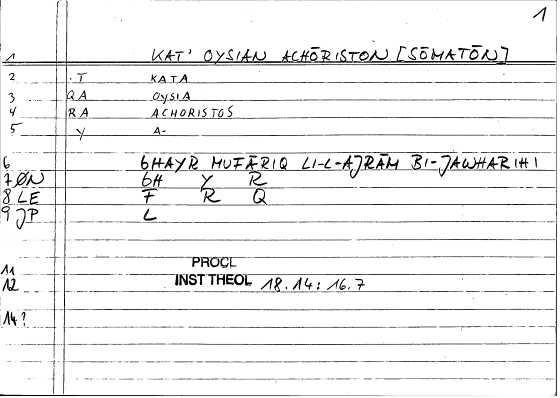 1
1 KAT' OYSIAN ACHŌRISTON [SŌMATŌN]
2 .T KATA
3 QA OYSIA
4 RA ACHORISTOS
5 Y A-
6 GHAYR MUFĀRIQ LI-L-AJRĀM BI-JAWHARIHI
7 ØN GH Y R
8 LE F R Q
9 JP L
11 PROCL
12 INST THEOL 18.14: 16.7
14?